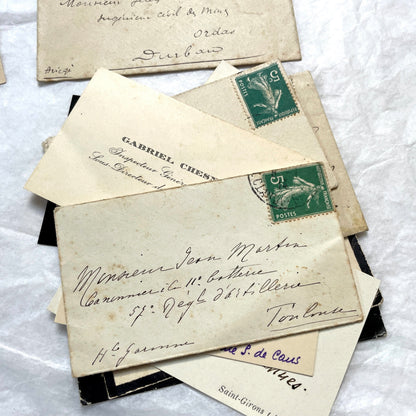 Monsieur
Ingénieur civil des mines
Ordas
Durban
Ariège
5c
GABRIEL CHESN
Inspecteur Géné
Sous-Directeur d
5c
POSTES
Monsieur Jean Martin
Canonnier à la 11e batterie
57e Regt d'Artillerie
Toulouse
Hte Garonne
S. de Caus
Saint-Girons